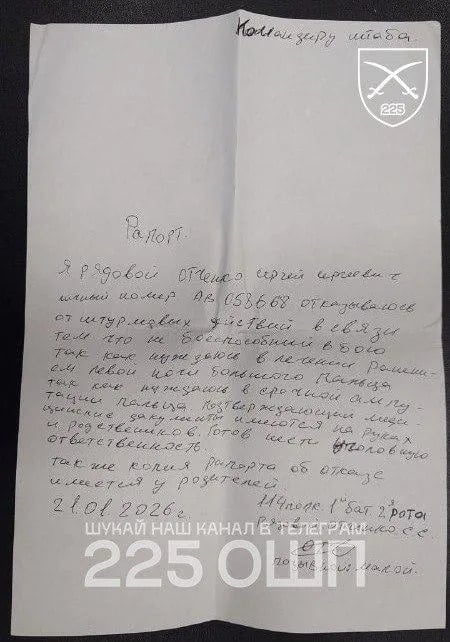 Командиру штаба.
225
Рапорт.
Я рядовой Отченко Сергей Сергеевич
личный номер АВ 058668 отказываюсь
от штурмовых действий в связи
тем что не боеспособный в бою
так как нуждаюсь в лечении
ем левой ноги большого пальца
так как нуждаюсь в срочной ампу-
тации пальца подтверждающий меди-
цинские документы имеются на руках
и родственников. Готов нести уголовную
ответственность.
также копия рапорта об отказе
имеется у родителей.
21.01.2026г. 114 полк. 1й бат. 2я рота
ШУКАЙ НАШ КАНАЛ В ТЕЛЕГРАМ
225 ОШП
позывной